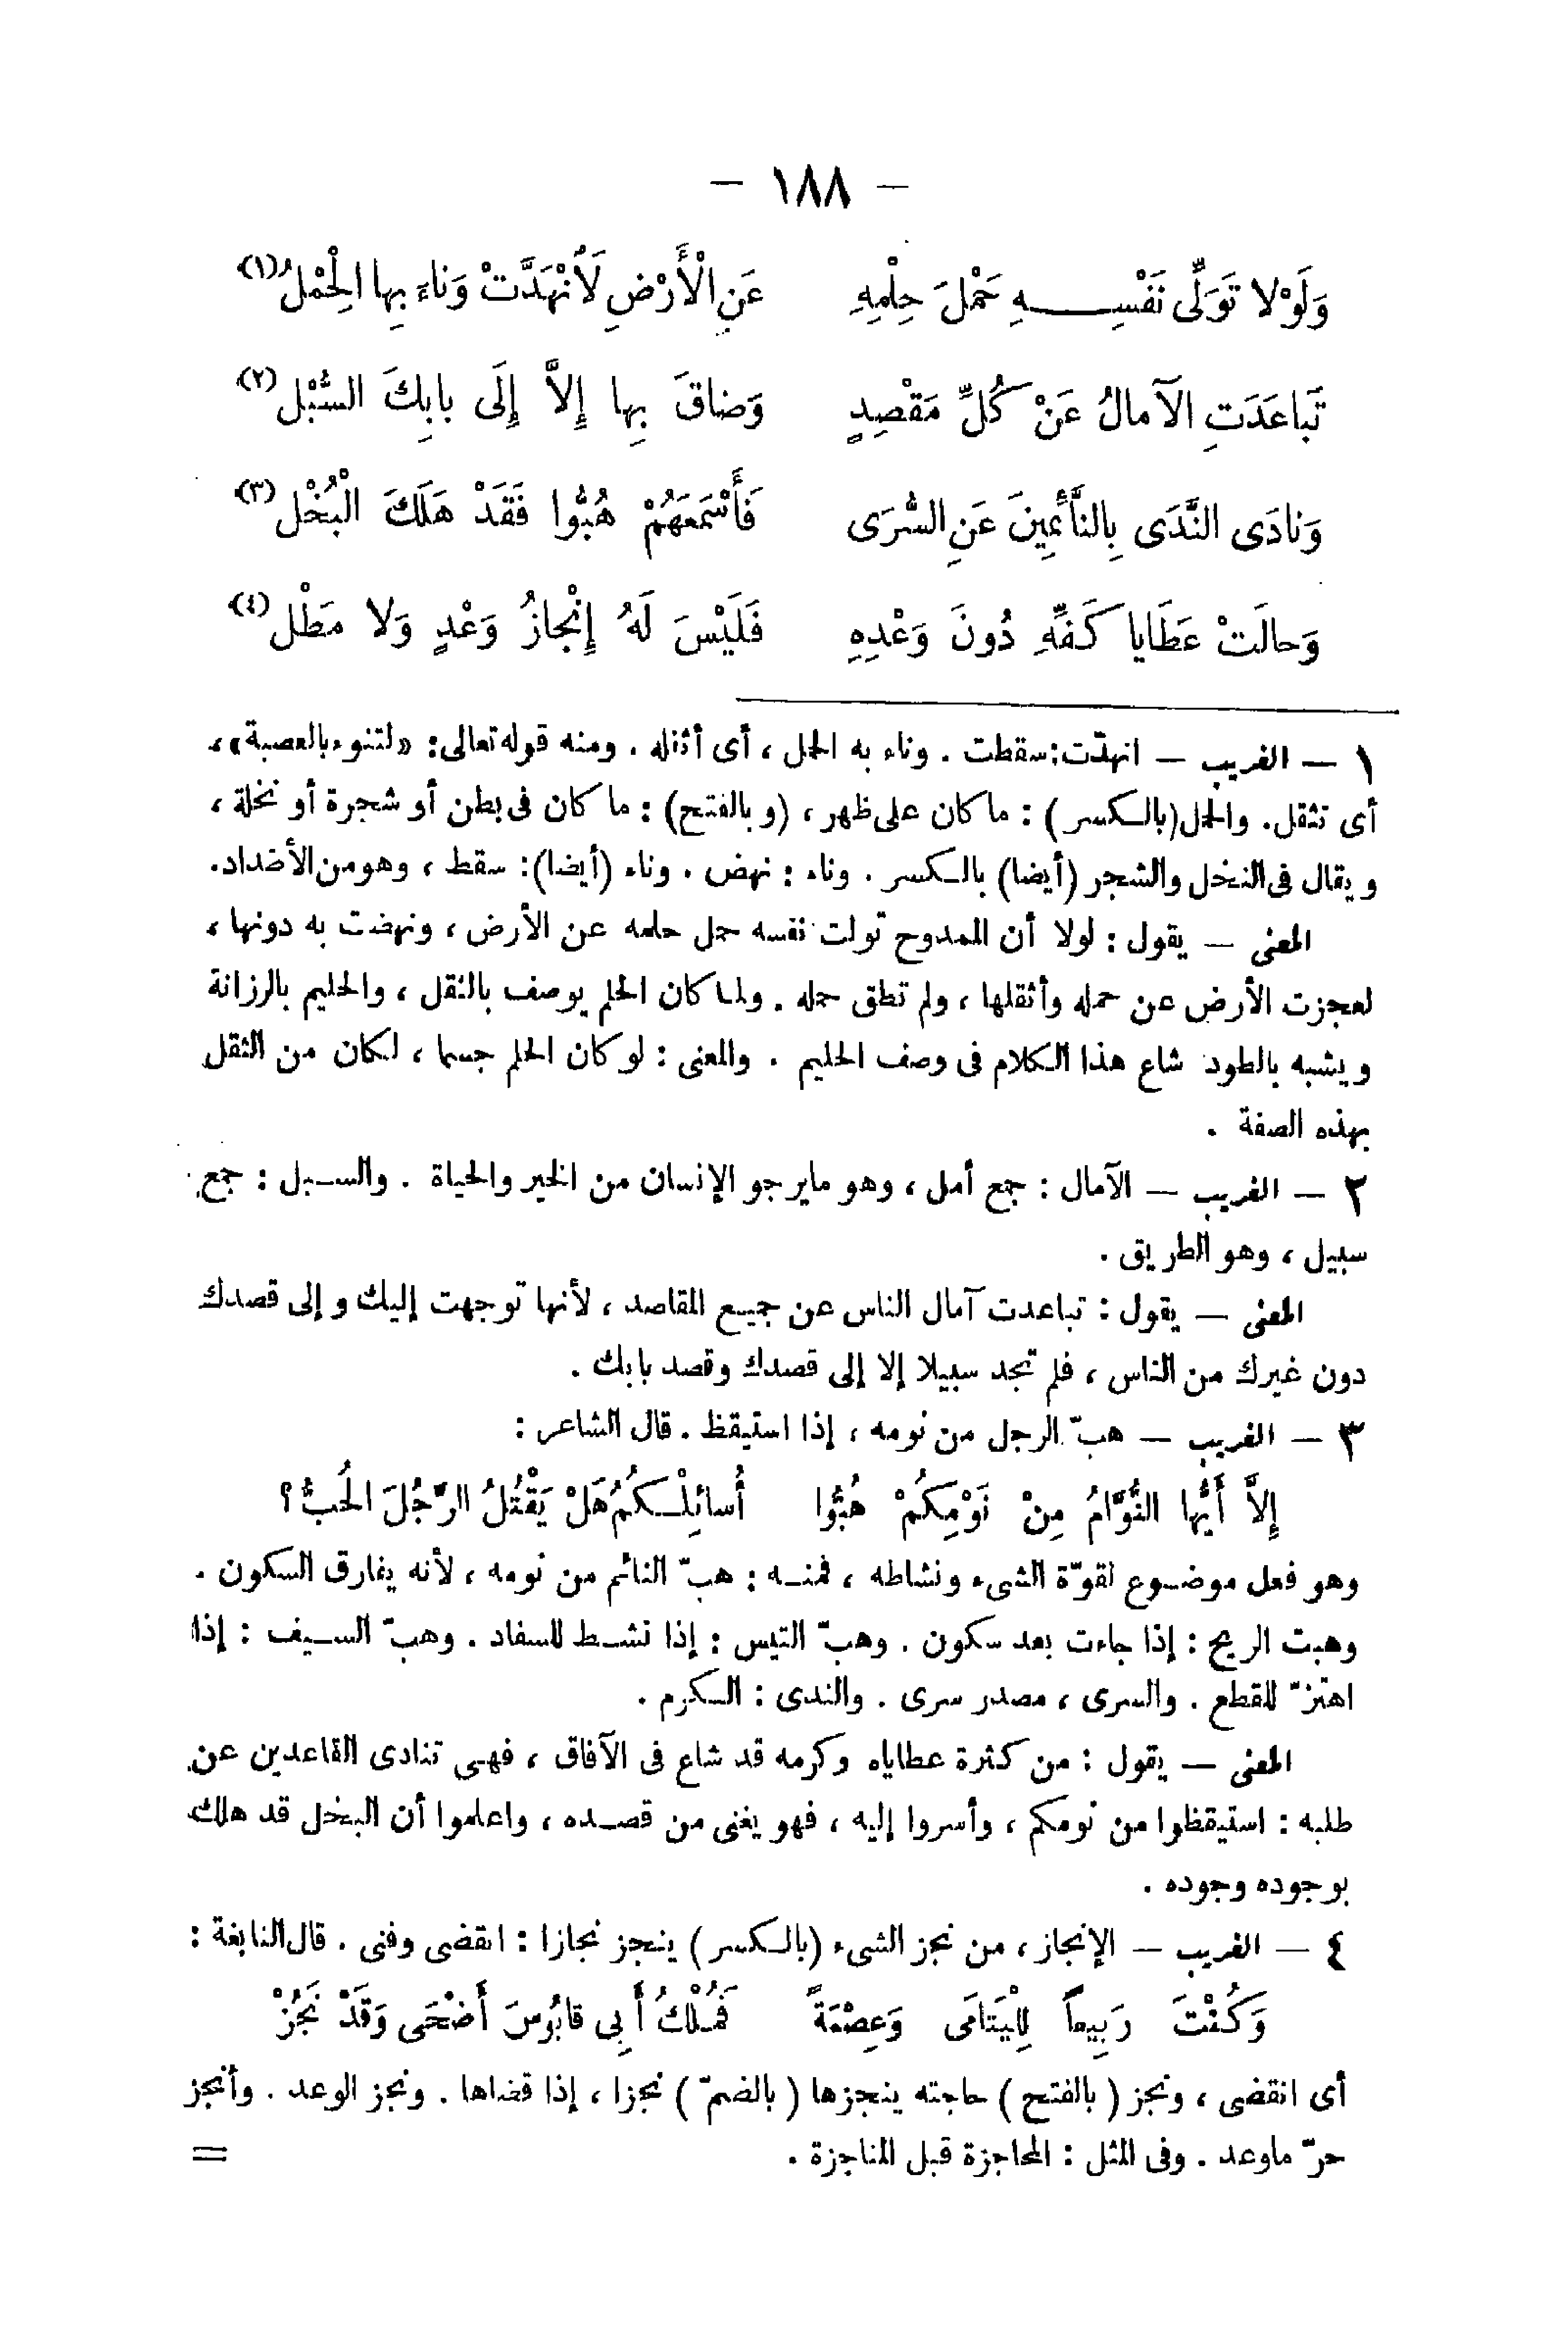 — ١٨٨ —
وَلَوْلا تَوَلِّى نَفْسِـــهِ حَمْلَ حِلْمِهِ عَنِ الْأَرْضِ لَأنْهَدَّتْ وَناءَ بِها الحِمْلُ (١)
تَباعَدَتِ الآمالُ عَنْ كُلِّ مَقْصِدٍ وَضاقَ بِها إِلاَّ إِلَى بابِكَ السُّبْل (٢)
وَنادَى النَّدَى بِالنَّأئِمِينَ عَنِ السُّرَى فَأَسْمَعَهُمْ هُبُّوا فَقَدْ هَلَكَ الْبُخْل (٣)
وَحالَتْ عَطَايا كَفِّهِ دُونَ وَعْدِهِ فَلَيْسَ لَهُ إِنْجازُ وَعْدٍ وَلا مَطْل (٤)
١ — الغريب — انهدّت: سقطت . وناء به الحمل ، أى أثقله . ومنه قوله تعالى: «لتنوء بالعصبة» ،
أى تثقل. والحمل (بالكسر) : ما كان على ظهر ، (وبالفتح) : ما كان فى بطن أو شجرة أو نخلة ،
ويقال فى النخل والشجر (أيضا) بالكسر . وناء : نهض . وناء (أيضا): سقط ، وهو من الأضداد.
المعنى — يقول : لولا أن الممدوح تولت نفسه حمل حلمه عن الأرض ، ونهضت به دونها ،
لعجزت الأرض عن حمله وأثقلها ، ولم تطق حمله . ولما كان الحلم يوصف بالثقل ، والحليم بالرزانة
ويشبه بالطود شاع هذا الكلام فى وصف الحليم . والمعنى : لو كان الحلم جسما ، لكان من الثقل
بهذه الصفة .
٢ — الغريب — الآمال : جمع أمل ، وهو ما يرجو الإنسان من الخير والحياة . والسبل : جمع
سبيل ، وهو الطريق .
المعنى — يقول : تباعدت آمال الناس عن جميع المقاصد ، لأنها توجهت إليك وإلى قصدك
دون غيرك من الناس ، فلم تجد سبيلا إلا إلى قصدك وقصد بابك .
٣ — الغريب — هبّ الرجل من نومه ، إذا استيقظ . قال الشاعر :
إِلاَّ أَيُّها النُّوَّامُ مِنْ نَوْمِكُمْ هُبُّوا أُسائِلْكُمُ هَلْ يَقْتُلُ الرَّجُلَ الحُبُّ ؟
وهو فعل موضوع لقوّة الشىء ونشاطه ، فمنه : هبّ النائم من نومه ، لأنه يفارق السكون .
وهبت الريح : إذا جاءت بعد سكون . وهبّ التيس : إذا نشط للسفاد . وهبّ السيف : إذا
اهتزّ للقطع . والسرى ، مصدر سرى . والندى : الكرم .
المعنى — يقول : من كثرة عطاياه وكرمه قد شاع فى الآفاق ، فهى تنادى القاعدين عن
طلبه : استيقظوا من نومكم ، وأسروا إليه ، فهو يغنى من قصده ، واعلموا أن البخل قد هلك
بوجوده وجوده .
٤ — الغريب — الإنجاز ، من نجز الشىء (بالكسر) ينجز نجازا : انقضى وفنى . قال النابغة :
وَكُنْتَ رَبِيعاً لِلْيَتَامَى وَعِصْمَةً فَمُلْكُ أَبِى قابُوسَ أَضْحَى وَقَدْ نَجُزْ
أى انقضى ، ونجز (بالفتح) حاجته ينجزها (بالضمّ) نجزا ، إذا قضاها . ونجز الوعد . وأنجز
حرّ ما وعد . وفى المثل : المحاجزة قبل المناجزة . =